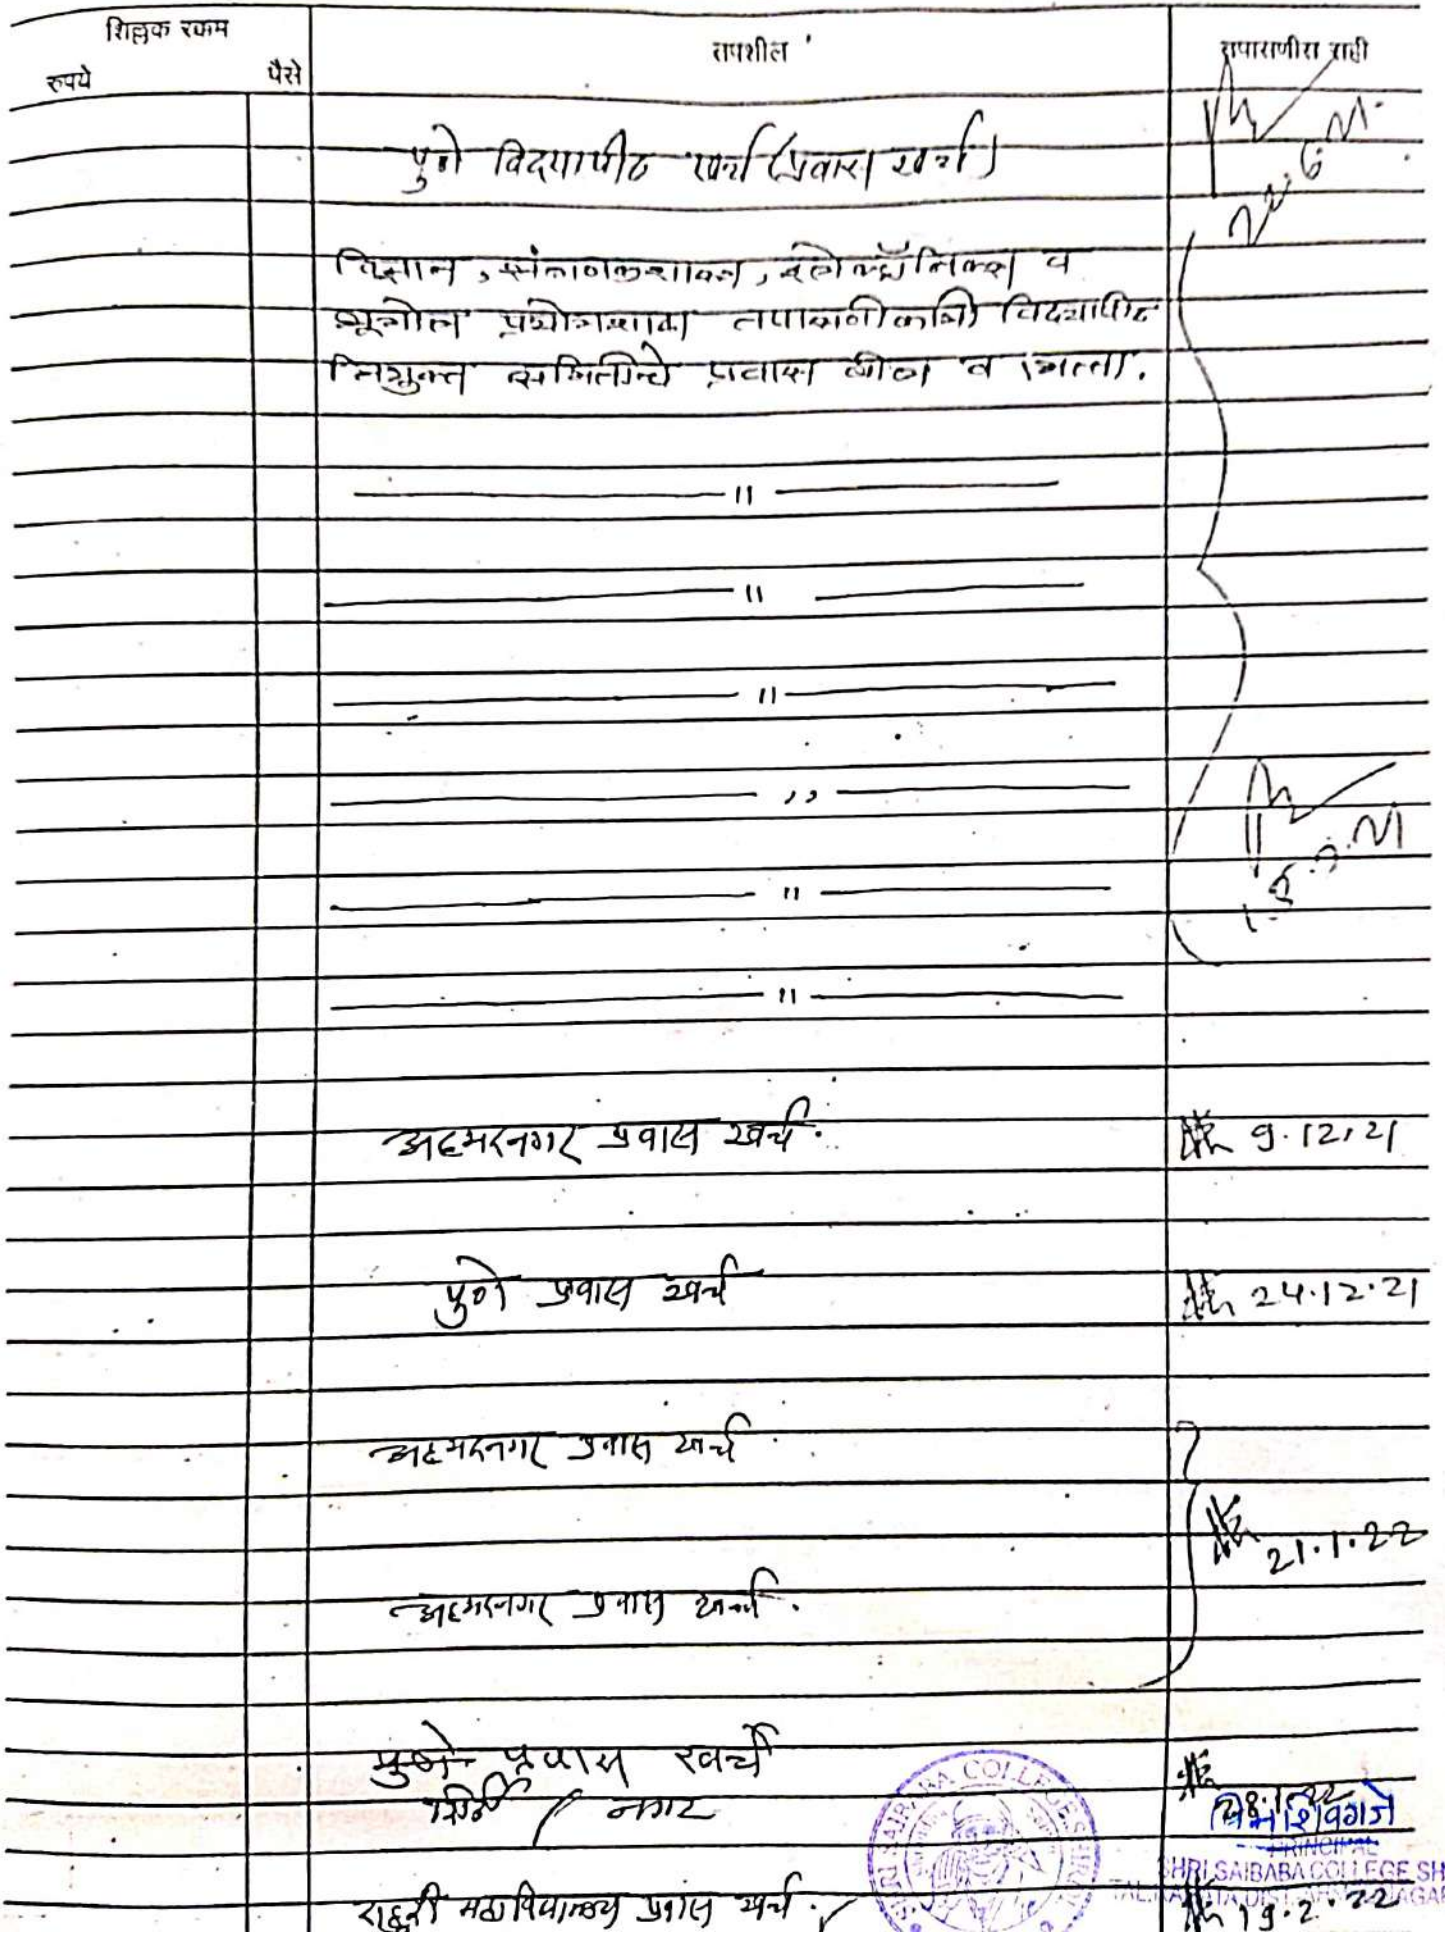 शिल्लक रक्कम
रुपये पैसे तपशील तपासणीस सही
पुणे विदयापीठ खर्च (प्रवास खर्च)
विज्ञान, संगणकशास्त्र, इलेक्ट्रॉनिक्स व
भूगोल प्रयोगशाळा तपासणीकामी विदयापीठ
नियुक्त समितीचे प्रवास बील व भत्ता.
—— 11 ——
—— 11 ——
—— 11 ——
—— ,, ——
—— 11 ——
—— 11 ——
अहमदनगर प्रवास खर्च. 9.12.21
पुणे प्रवास खर्च 24.12.21
अहमदनगर प्रवास खर्च
21.1.22
अहमदनगर प्रवास खर्च.
पुणे प्रवास खर्च
/ नगर 28.1.22
PRINCIPAL
SHRI SAIBABA COLLEGE SH
राहुरी महाविद्यालय प्रवास खर्च. 19.2.22